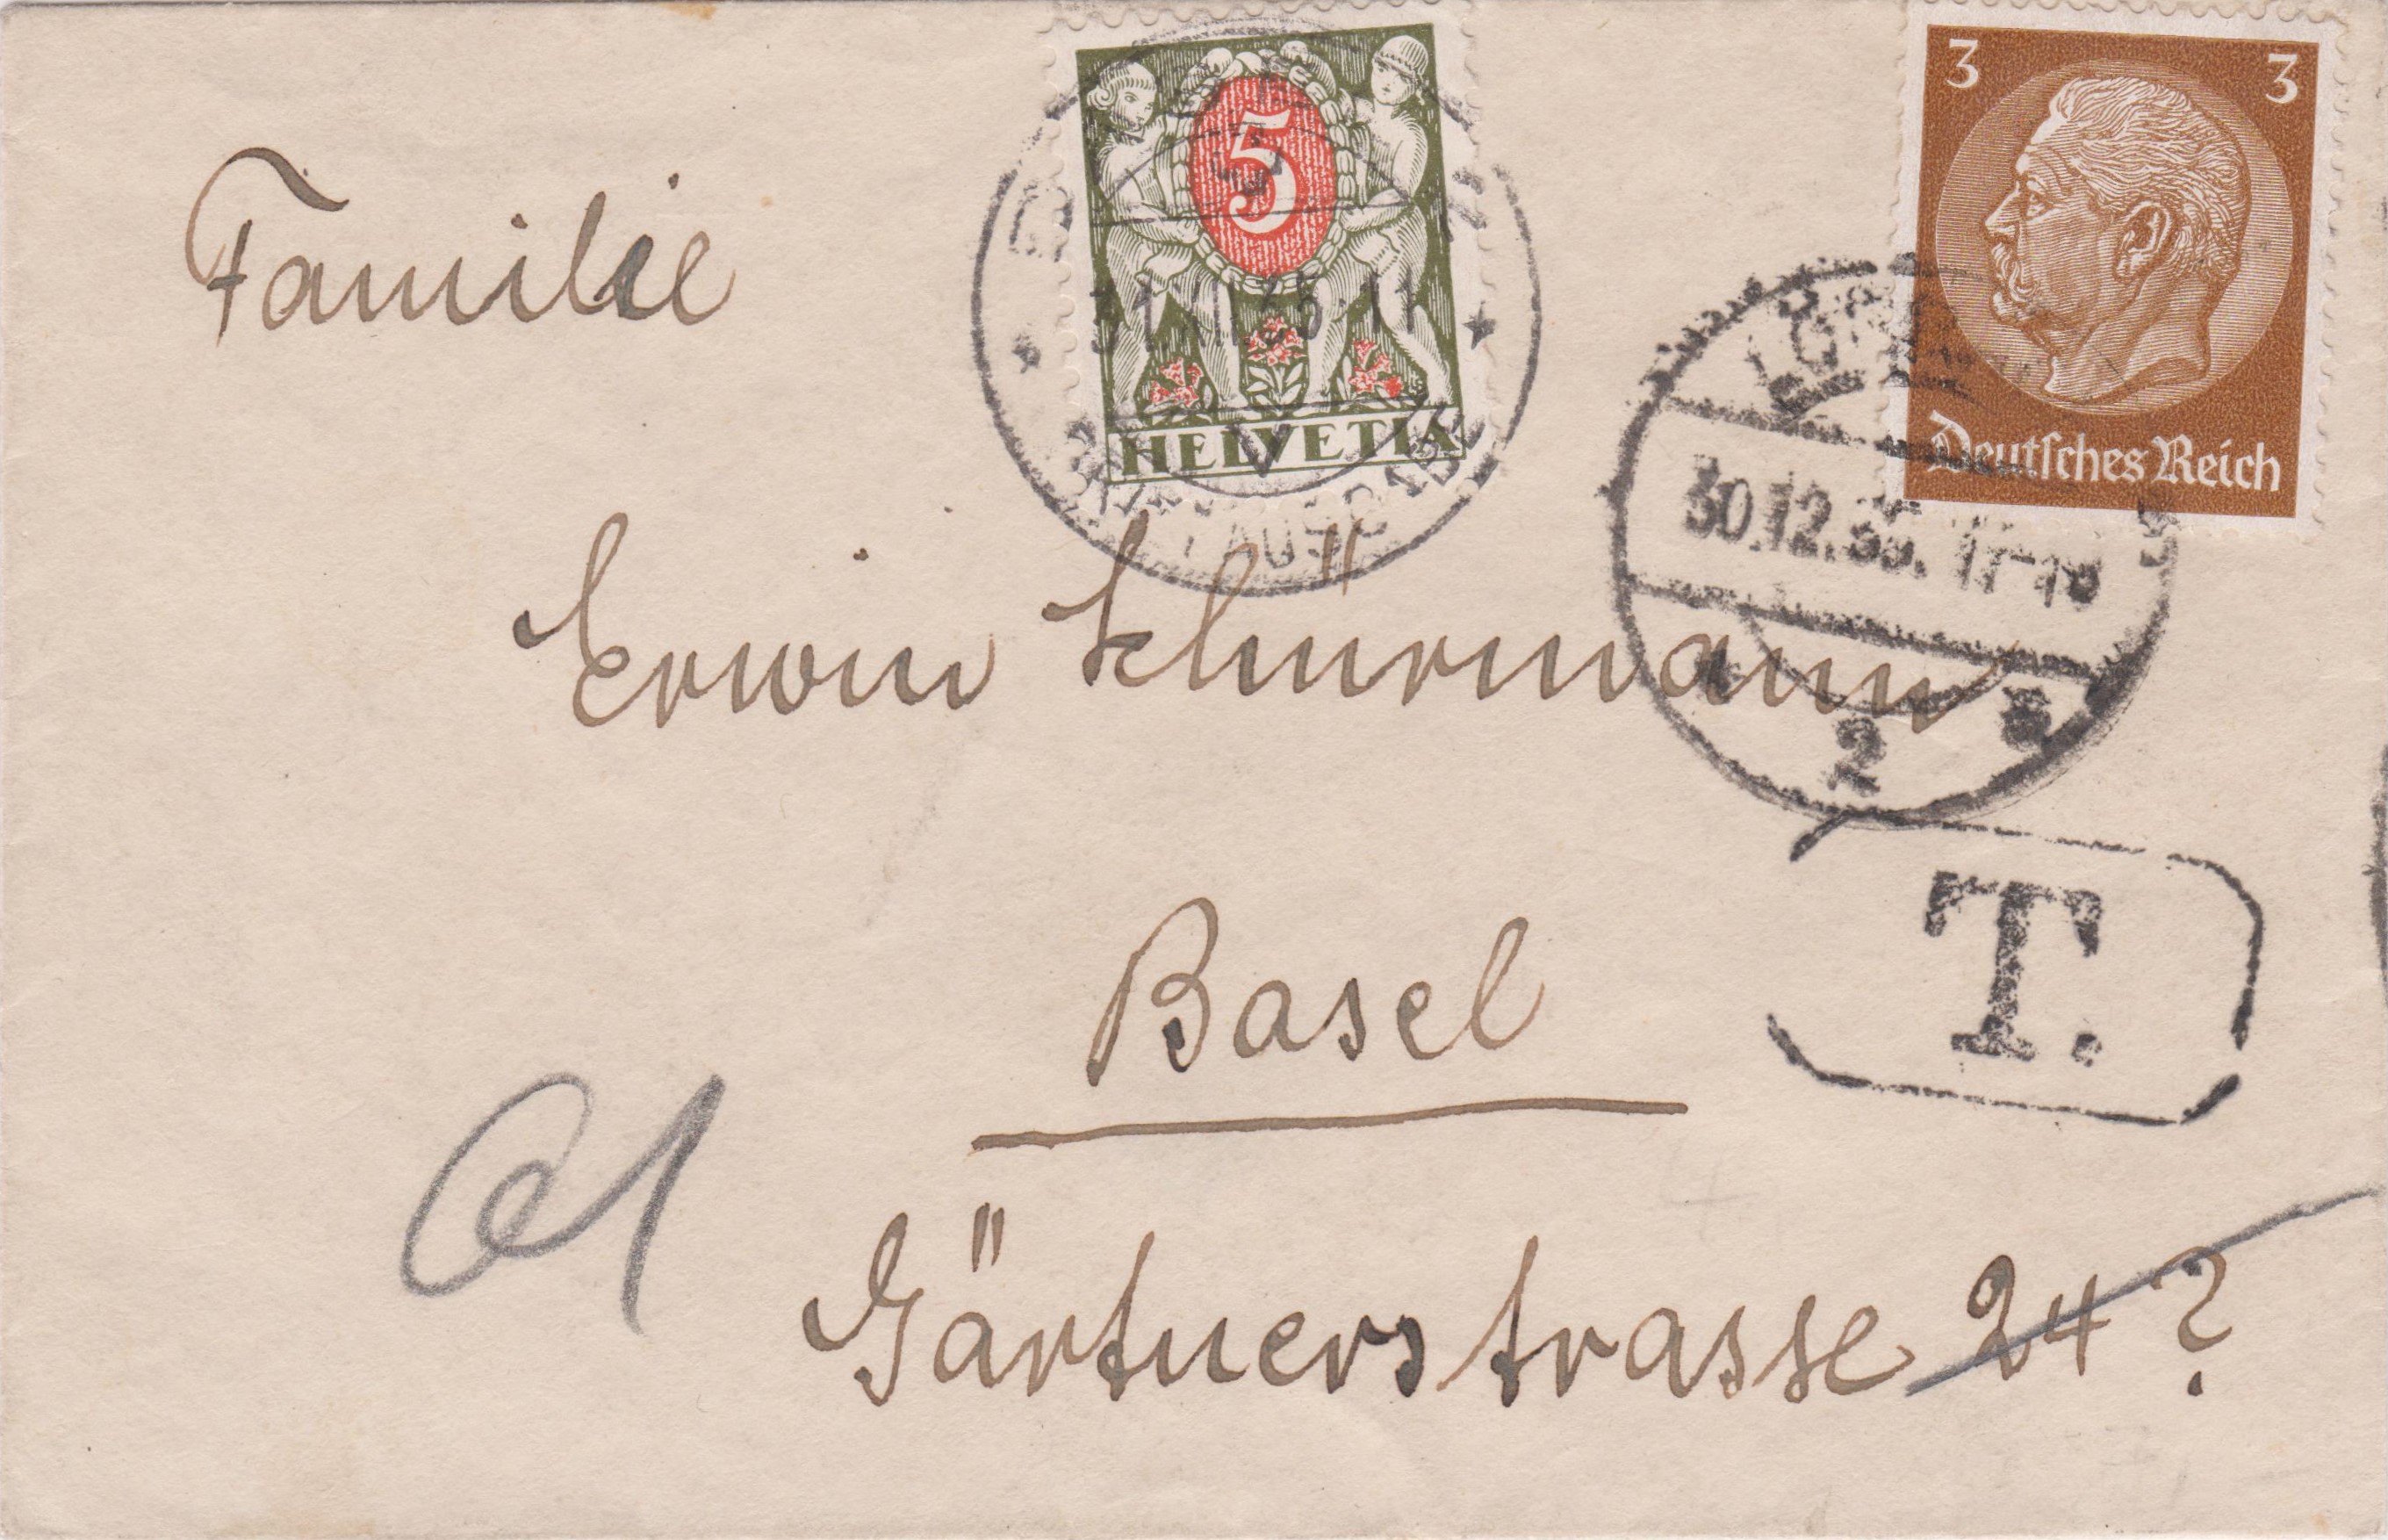 5
HELVETIA
31.XII.35·11
V
3 3
Deutsches Reich
30.12.35. 17-18
2
Familie
Erwin Schürmann
T.
Basel
Gärtnerstrasse 24?